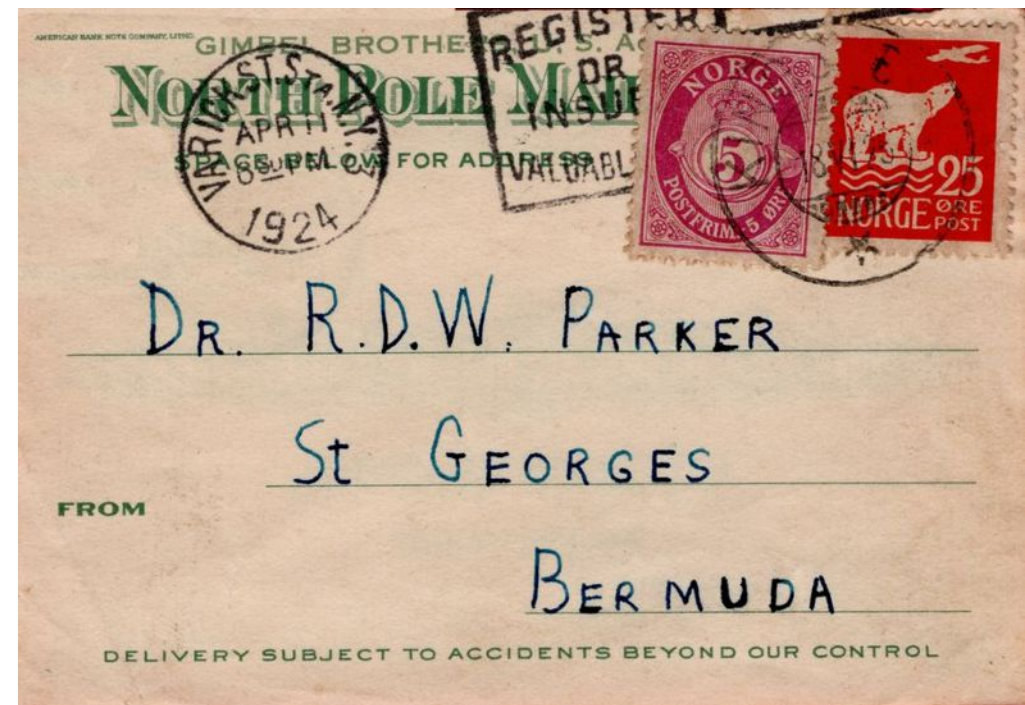 AMERICAN BANK NOTE COMPANY, LITHO.
GIMBEL BROTHERS, U. S. A
NORTH POLE MAIL
SPACE BELOW FOR ADDRESS
VARICK ST. STA. N.Y.
APR 11
8 PM
1924
REGISTER
OR
INSURE
VALUABL
NORGE
5
POSTFRIM. 5 ØRE
25
NORGE ØRE
POST
DR. R.D.W. PARKER
St GEORGES
FROM
BERMUDA
DELIVERY SUBJECT TO ACCIDENTS BEYOND OUR CONTROL